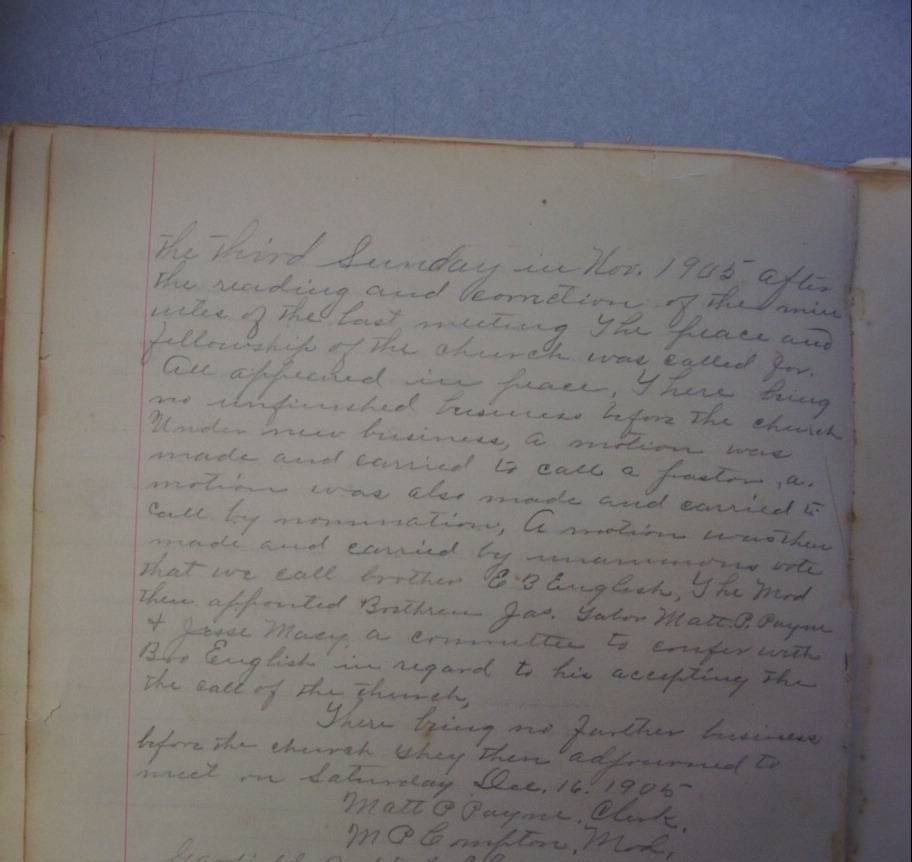 the third Sunday in Nov. 1905 after
the reading and corretion of the min
utes of the last meeting The peace and
fellowship of the church was called for.
All appeared in peace, There being
no unfinished business before the church
Under new business, a motion was
made and carried to call a pastor, a.
motion was also made and carried to
call by nomination, A motion was then
made and carried by unanimous vote
that we call brother E B English, The Mod
then appointed Brethren Jas. Tabor Matt. P. Payne
& Jesse Macy a committee to confer with
Bro English in regard to his accepting the
the call of the church,
There being no further business
before the church they then adjourned to
meet on Saturday Dec. 16. 1905
Matt P Payne, Clerk.
M P Compton, Mod.